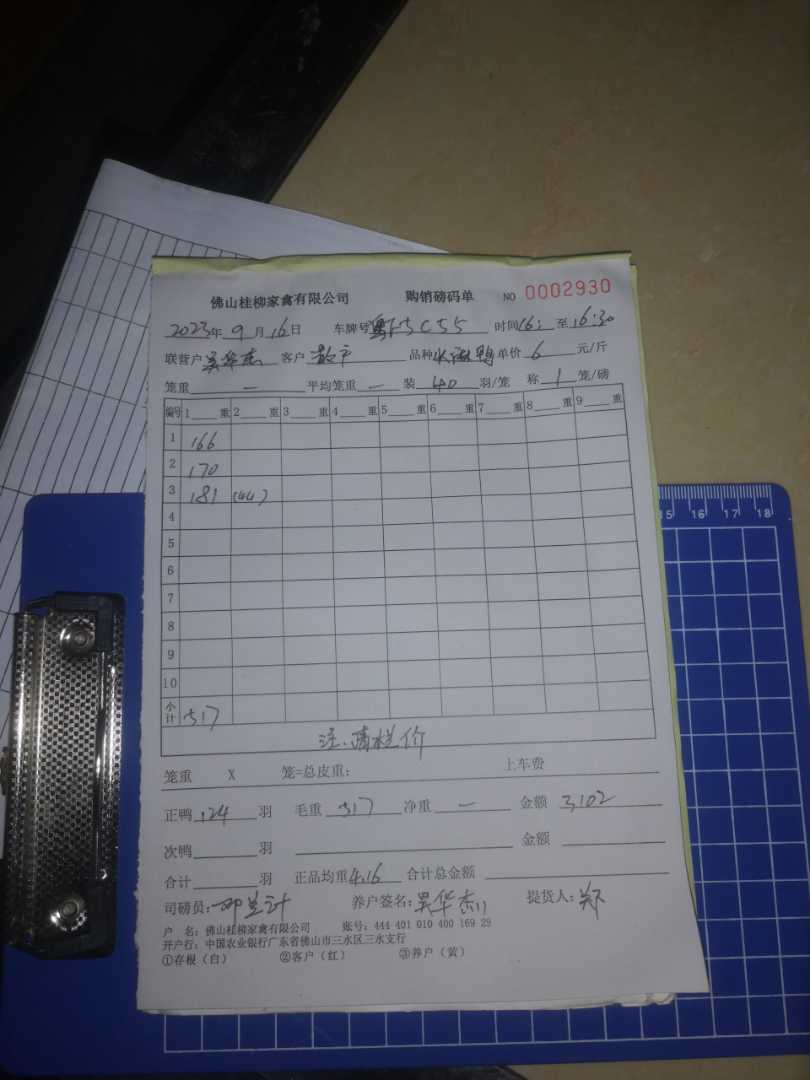 佛山桂柳家禽有限公司 购销磅码单 NO 0002930
2023年 9 月 16 日 车牌号 C55 时间 16: 至 16:30
联营户 吴华杰 客户 散户 品种 鸭 单价 6 元/斤
笼重 — 平均笼重 — 装 40 羽/笼 称 1 笼/磅
编号 1 重 2 重 3 重 4 重 5 重 6 重 7 重 8 重 9 重
1 166
2 170
3 181 (44)
4
5
6
7
8
9
10
小计 517
注:清栏价
笼重 X 笼=总皮重: 上车费
正鸭 124 羽 毛重 517 净重 — 金额 3102
次鸭 羽 金额
合计 羽 正品均重 4.16 合计总金额
司磅员: 养户签名: 吴华杰 提货人: 郑
户 名: 佛山桂柳家禽有限公司 账号: 444 401 010 400 169 29
开户行: 中国农业银行广东省佛山市三水区三水支行
①存根(白) ②客户(红) ③养户(黄)
15 16 17 18